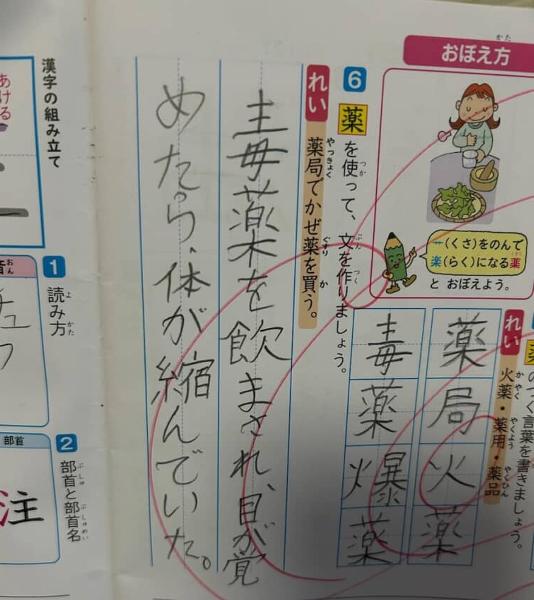 おぼえ方
艹(くさ)をのんで
楽(らく)になる薬
とおぼえよう。
言葉を書きましょう。
れい 火薬・薬用・薬品
薬局火薬
毒薬爆薬
6 薬を使って、文を作りましょう。
れい 薬局でかぜ薬を買う。
毒薬を飲まされ、目が覚
めたら、体が縮んでいた。
漢字の組み立て
あける
1 読み方
2 部首と部首名
部首
注